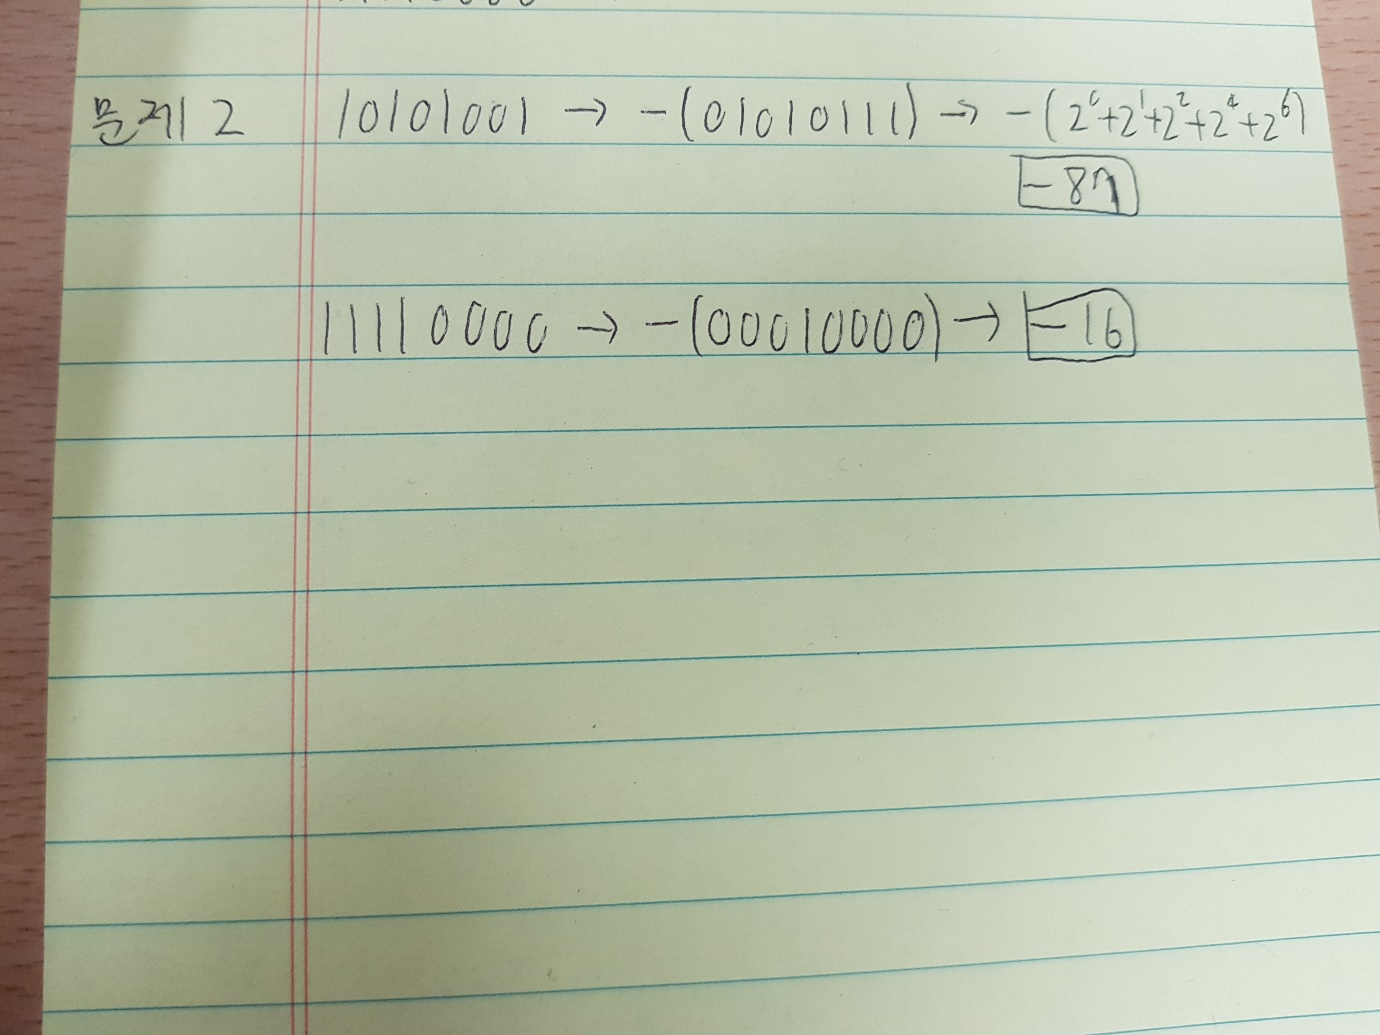 문제 2 10101001 → -(01010111) → -(2⁰+2¹+2²+2⁴+2⁶)
-87
11110000 → -(00010000) → -16